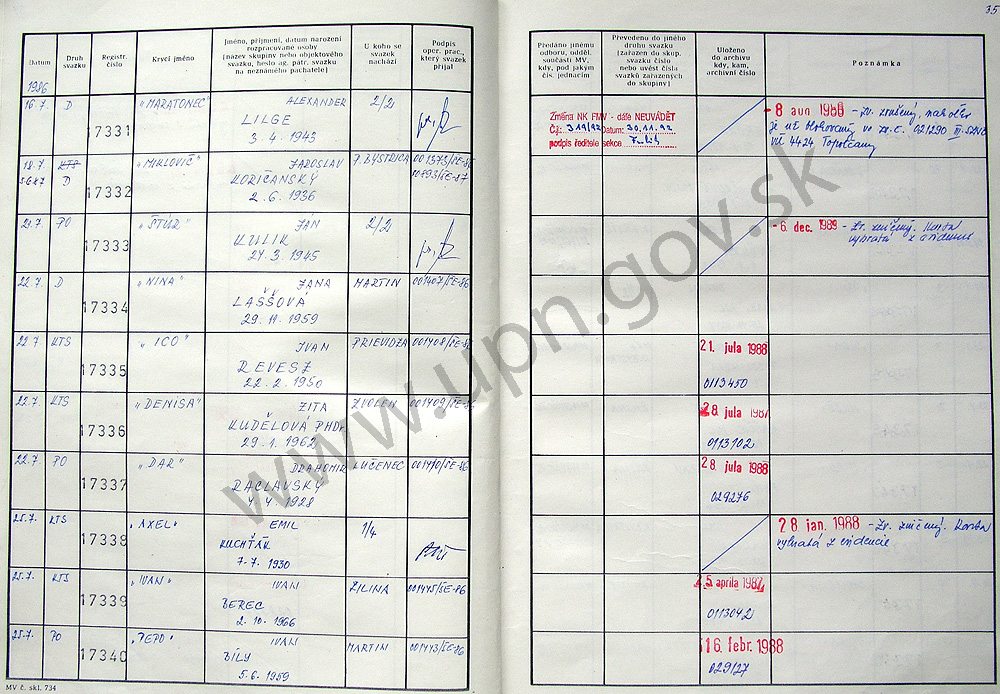 35
Datum
Druh svazku
Registr. číslo
Krycí jméno
Jméno, příjmení, datum narození
rozpracované osoby
(název skupiny nebo objektového
svazku, heslo ag. pátr. svazku
na neznámého pachatele)
U koho se
svazek
nachází
Podpis
oper. prac.,
který svazek
přijal
Předáno jinému
odboru, odděl.
součásti MV,
kdy, pod jakým
čís. jednacím
Převedeno do jiného
druhu svazku
(zařazen do skup.
svazku číslo
nebo uvést čísla
svazků zařazených
do skupiny)
Uloženo
do archivu
kdy, kam,
archivní číslo
Poznámka
1986
16.7. D 17331 "MARATONEC" ALEXANDER 2/2
LILGE
3. 4. 1943
Změna NK FMV - dáře NEUVÁDĚT
Č.j.: 319/92 Datum: 30.11.92
podpis ředitele sekce
- 8 aug 1988 - Zv. zrušený, nakoľko
je už blokovaný vo zv. č. 021290
4424 Topoľčany
18.7. KTS 17332 "MIKLOVIČ" JAROSLAV P. BYSTRICA 001373/SE-86
D KORIČANSKÝ
2. 6. 1936
21.7. PO 17333 "ŠTÚR" JÁN 2/2
KULIK
24. 3. 1945
- 6. dec. 1989 - Zv. zničený. Karta
vybratá z evidencie
22.7. D 17334 "NINA" JANA MARTIN 001407/SE-86
LAŠŠOVÁ
29. 11. 1959
22.7 KTS 17335 "ICO" IVAN PRIEVIDZA 001408/SE-86
REVESZ
22. 2. 1950
21. júla 1988
0113450
22.7. KTS 17336 "DENISA" ZITA ZVOLEN 001409/SE-86
KUDĚLOVÁ PHDr
29. 1. 1962
28. júla 1987
0113102
22.7. PO 17337 "DAR" DRAHOMIR LUČENEC 001410/SE-86
RACLAVSKÝ
4. 4. 1928
28. júla 1988
029276
25.7. KTS 17338 "AXEL" EMIL 1/4
KUCHTÁK
7. 7. 1930
28 jan. 1988 - Zv. zničený. Karta
vybratá z evidencie
25.7. KTS 17339 "IVAN" IVAN ŽILINA 001445/SE-86
BEREC
2. 10. 1966
5. apríla 1987
0113042
25.7. PO 17340 "PEPO" IVAN MARTIN 001443/SE-86
BÍLY
5. 6. 1959
16. febr. 1988
029127
MV č. skl. 734
www.upn.gov.sk